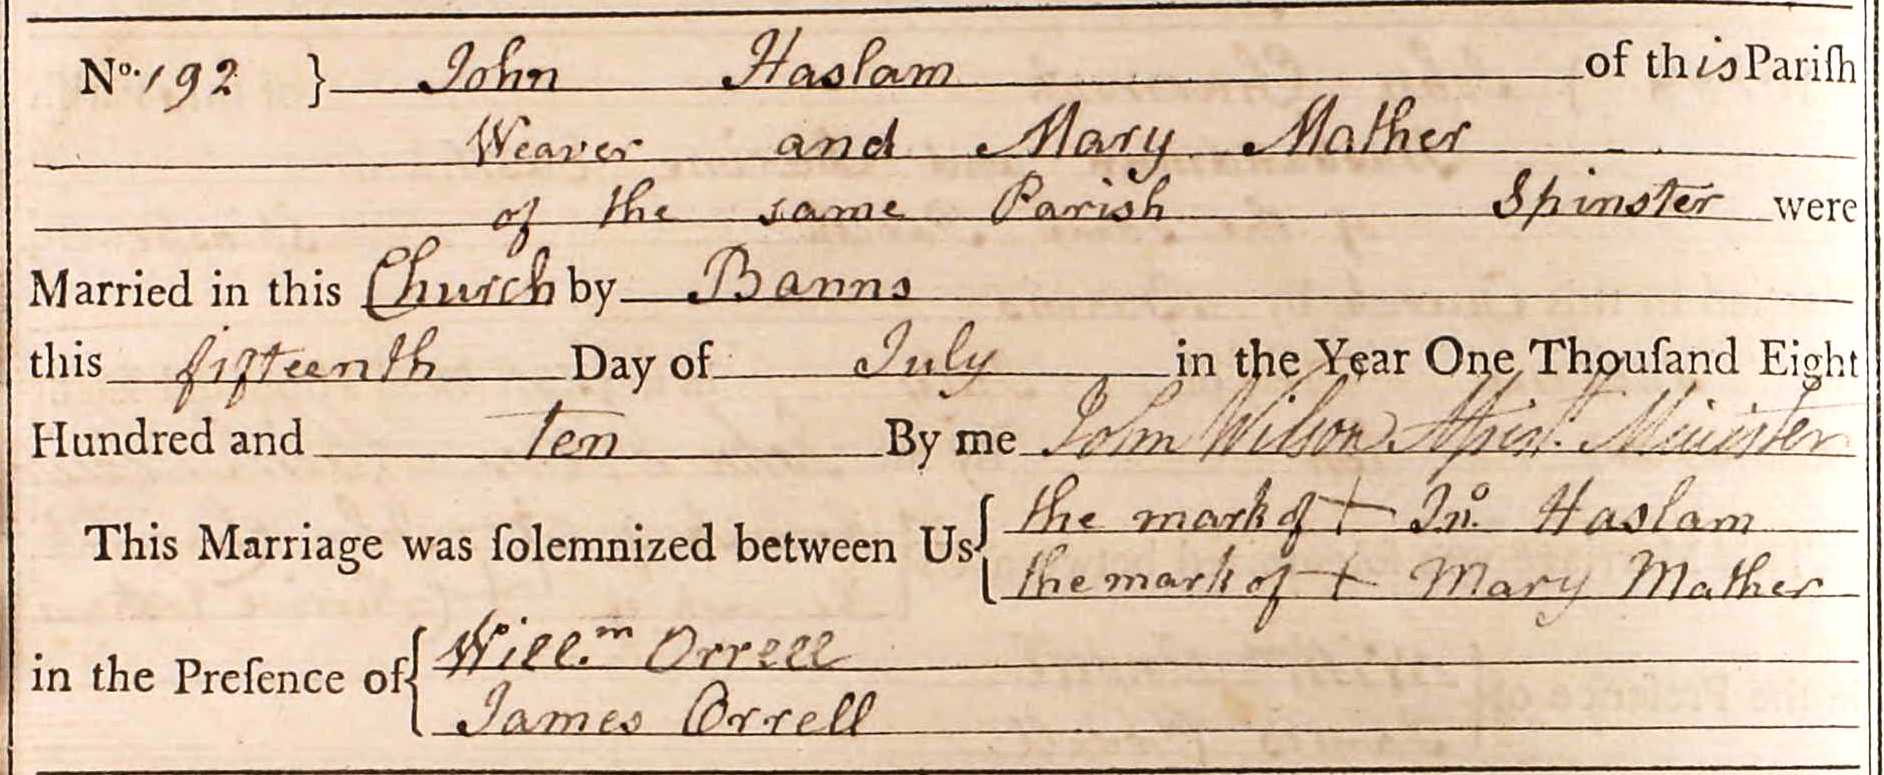 No. 192 } John Haslam of this Pariſh
Weaver and Mary Mather
of the same Parish Spinster were
Married in this Church by Banns
this fifteenth Day of July in the Year One Thouſand Eight
Hundred and Ten By me John Wilson Aſsist. Minister
This Marriage was ſolemnized between Us { the mark of + Jno. Haslam
the mark of + Mary Mather
in the Preſence of { Will.m Orrell
James Orrell